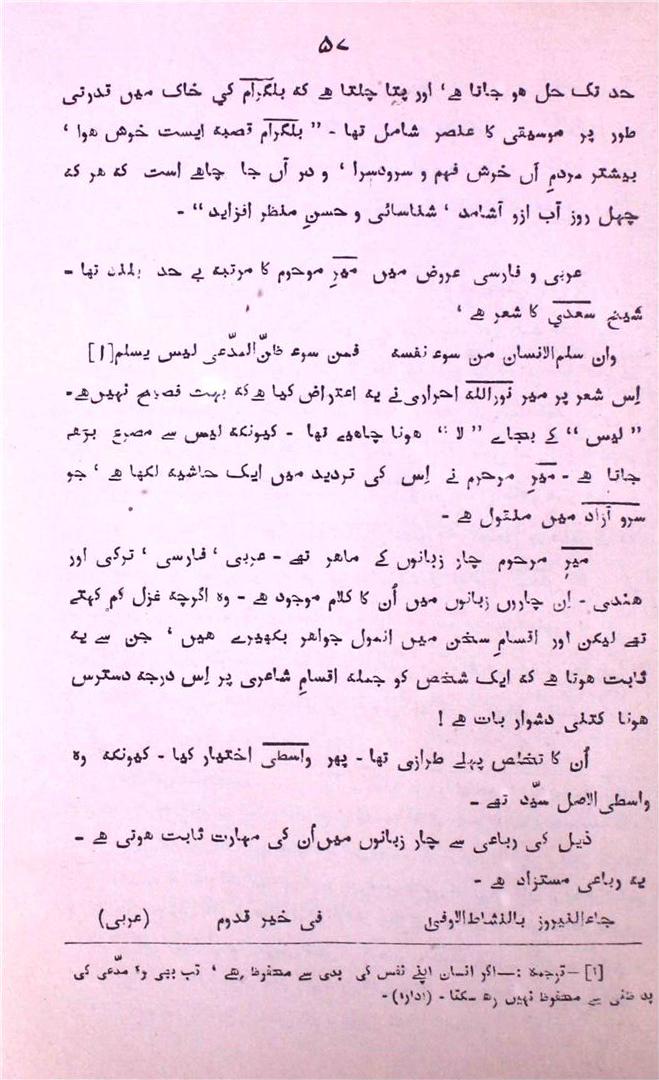 ۵۷
حد تک حل ہو جاتا ہے، اور پتا چلتا ہے کہ بلگرام کی خاک میں قدرتی
طور پر موسیقی کا عنصر شامل تھا - ” بلگرام قصبہ ایست خوش ہوا ،
بیشتر مردمِ آں خوش فہم و سرودسرا ، و در آں جا چاہے است کہ ہر کہ
چہل روز آب ازو آشامد ، شناسائی و حسنِ منظر افزاید “ -
عربی و فارسی عروض میں میرِ مرحوم کا مرتبہ بے حد بلند تھا -
شیخ سعدی کا شعر ہے ،
وان سلم الانسان من سوء نفسہ فمن سوء ظنّ المدّعی لیس یسلم[۱]
اِس شعر پر میر نوراللہ احراری نے یہ اعتراض کیا ہے کہ بہت فصیح نہیں ہے-
” لیس “ کے بجائے ” لا “ ہونا چاہیے تھا - کیونکہ لیس سے مصرع بڑھ
جاتا ہے - میرِ مرحوم نے اِس کی تردید میں ایک حاشیہ لکھا ہے ، جو
سرو آزاد میں منقول ہے -
میرِ مرحوم چار زبانوں کے ماہر تھے - عربی ، فارسی ، ترکی اور
ہندی - اِن چاروں زبانوں میں اُن کا کلام موجود ہے - وہ اگرچہ غزل کم کہتے
تھے لیکن اور اقسامِ سخن میں انمول جواہر بکھیرے ہیں ، جن سے یہ
ثابت ہوتا ہے کہ ایک شخص کو جملہ اقسامِ شاعری پر اِس درجہ دسترس
ہونا کتنی دشوار بات ہے !
اُن کا تخلص پہلے طرازی تھا - پھر واسطی اختیار کیا - کیونکہ وہ
واسطی الاصل سیّد تھے -
ذیل کی رباعی سے چار زبانوں میں اُن کی مہارت ثابت ہوتی ہے -
یہ رباعی مستزاد ہے -
جاء النیروز بالنشاط الاوفیٰ فی خیر قدوم (عربی)
[۱] -ترجمہ :—اگر انسان اپنے نفس کی بدی سے محفوظ رہے ، تب بھی وہ مدّعی کی
بد ظنی سے محفوظ نہیں رہ سکتا - (ادارہ) -